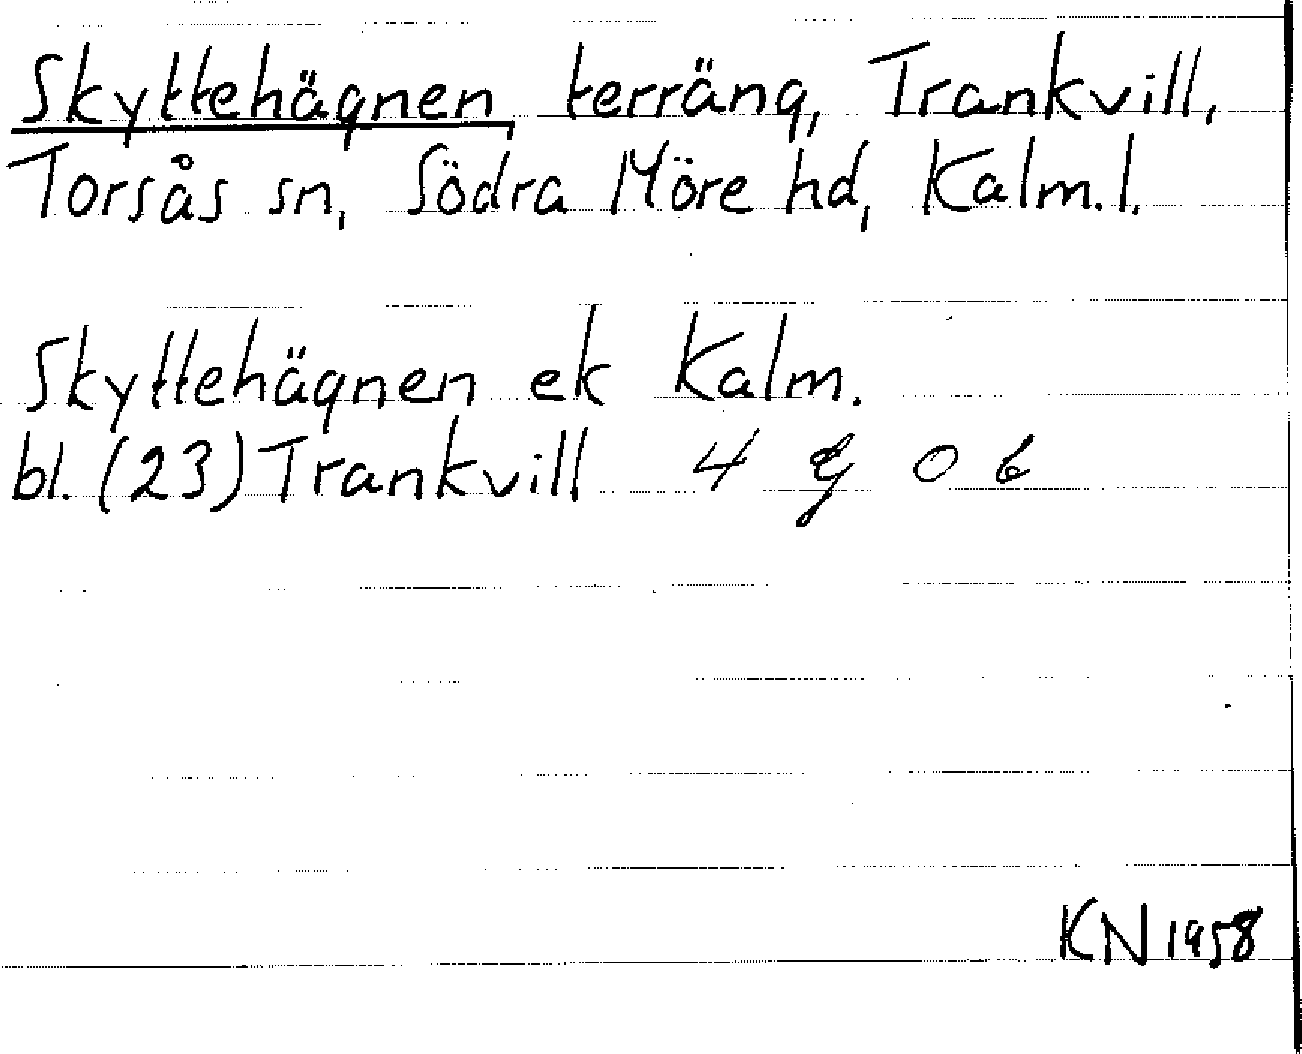 Skyttehägnen, terräng, Trankvill,
Torsås sn, Södra Möre hd, Kalm.l.
Skyttehägnen ek Kalm.
bl. (23) Trankvill 4 g 0 6
KN 1958